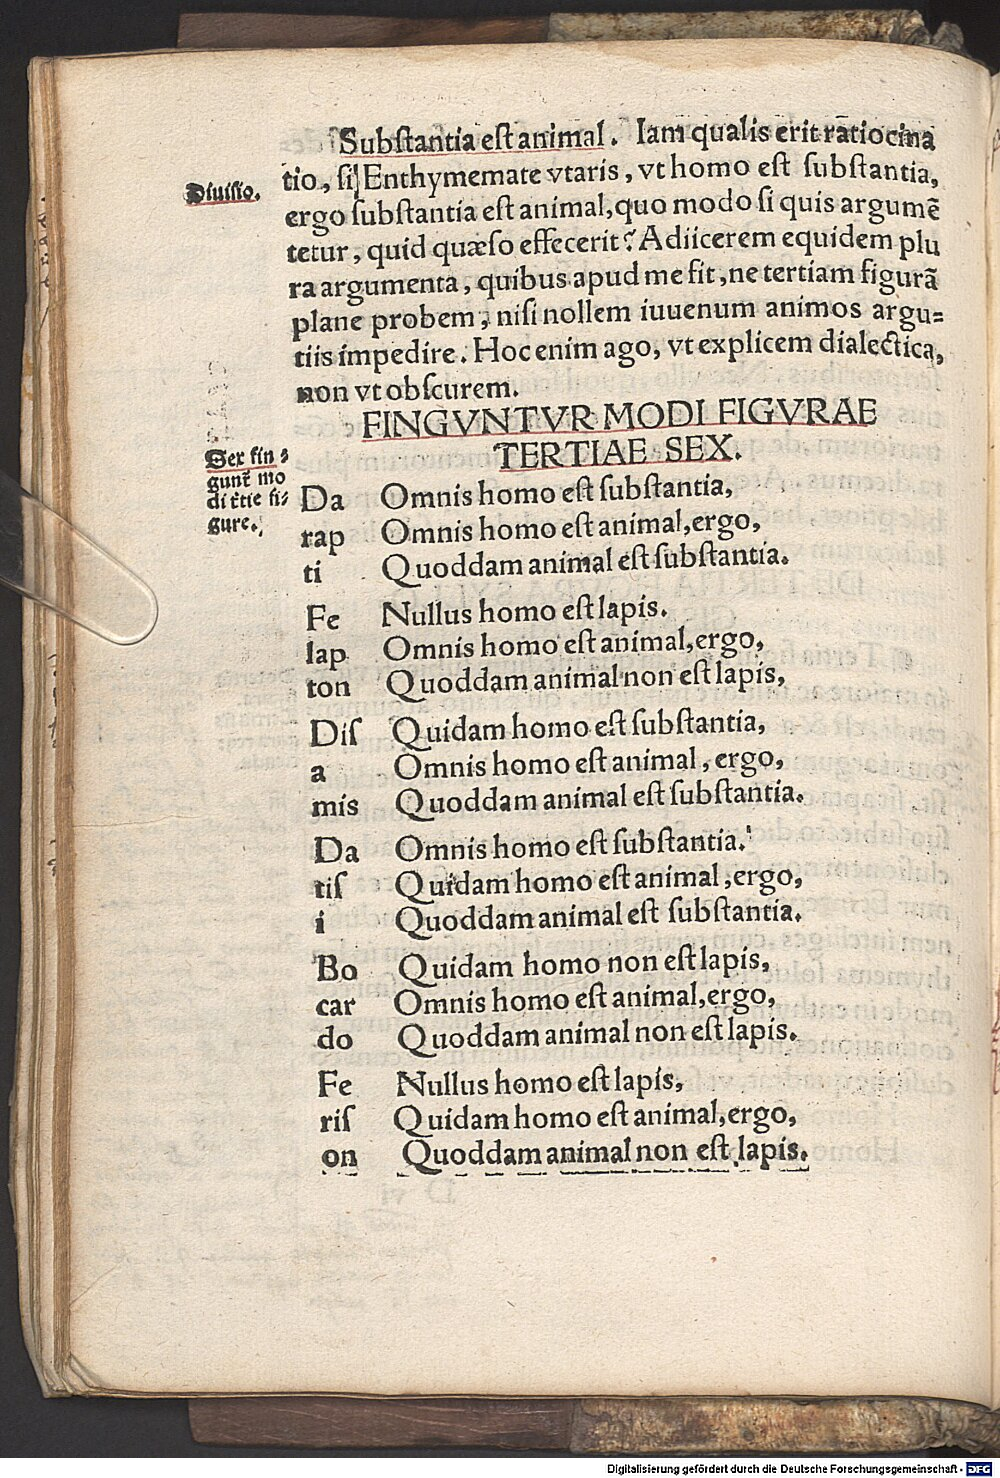 Substantia est animal. Iam qualis erit rãtiocina
tio, si Enthymemate vtaris, vt homo est substantia,
Diuisio.
ergo substantia est animal, quo modo si quis argumẽ
tetur, quid quæso effecerit? Adiicerem equidem plu
ra argumenta, quibus apud me fit, ne tertiam figurã
plane probem, nisi nollem iuuenum animos argu=
tiis impedire. Hoc enim ago, vt explicem dialectica,
non vt obscurem.
FINGVNTVR MODI FIGVRAE
TERTIAE SEX.
Sex fin=
gunt̃ mo
di t̃tie fi=
gure.
Da Omnis homo est substantia,
rap Omnis homo est animal, ergo,
ti Quoddam animal est substantia.
Fe Nullus homo est lapis.
lap Omnis homo est animal, ergo,
ton Quoddam animal non est lapis,
Dis Quidam homo est substantia,
a Omnis homo est animal, ergo,
mis Quoddam animal est substantia.
Da Omnis homo est substantia.
tis Quidam homo est animal, ergo,
i Quoddam animal est substantia.
Bo Quidam homo non est lapis,
car Omnis homo est animal, ergo,
do Quoddam animal non est lapis.
Fe Nullus homo est lapis,
ris Quidam homo est animal, ergo,
on Quoddam animal non est lapis.
Digitalisierung gefördert durch die Deutsche Forschungsgemeinschaft - DFG